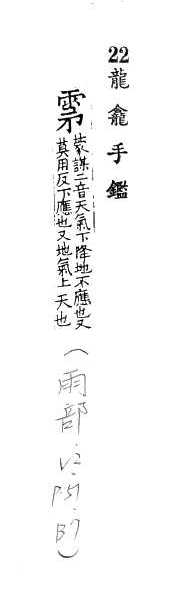 22 龍龕手鑑
蒙謀二音天氣下降地不應也又
莫用反下應也又地氣上天也
(雨部.V2.P.51.B7)